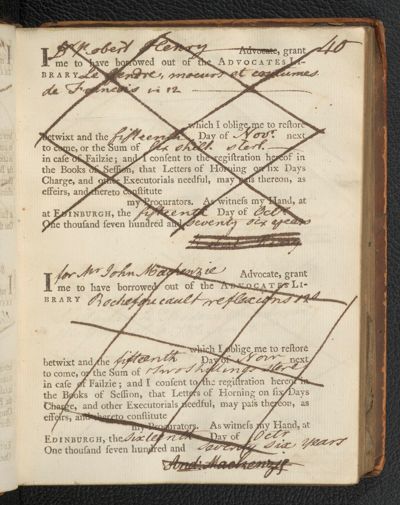 I Robert Henry Advocate, grant 40
me to have borrowed out of the ADVOCATES LI-
BRARY Le Gendre, moeurs et coutumes
de Francois in 12
which I oblige me to restore
betwixt and the fifteenth Day of Novr. next
to come, or the Sum of six shill. sterl.
in case of Failzie; and I consent to the registration hereof in
the Books of Session, that Letters of Horning on six Days
Charge, and other Executorials needful, may pass thereon, as
effeirs, and thereto constitute
my Procurators. As witness my Hand, at
at EDINBURGH, the fifteenth Day of Octr
One thousand seven hundred and seventy six years
I for Mr John Mackenzie Advocate, grant
me to have borrowed out of the ADVOCATES LI-
BRARY Rochefoucault reflexions 12o
which I oblige me to restore
betwixt and the fifteenth Day of Novr next
to come, or the Sum of two shillings sterl
in case of Failzie; and I consent to the registration hereof in
the Books of Session, that Letters of Horning on six Days
Charge, and other Executorials needful, may pass thereon, as
effeirs, and thereto constitute
my Procurators. As witness my Hand, at
EDINBURGH, the sixteenth Day of Octr
One thousand seven hundred and seventy six years
And: Mackenzie